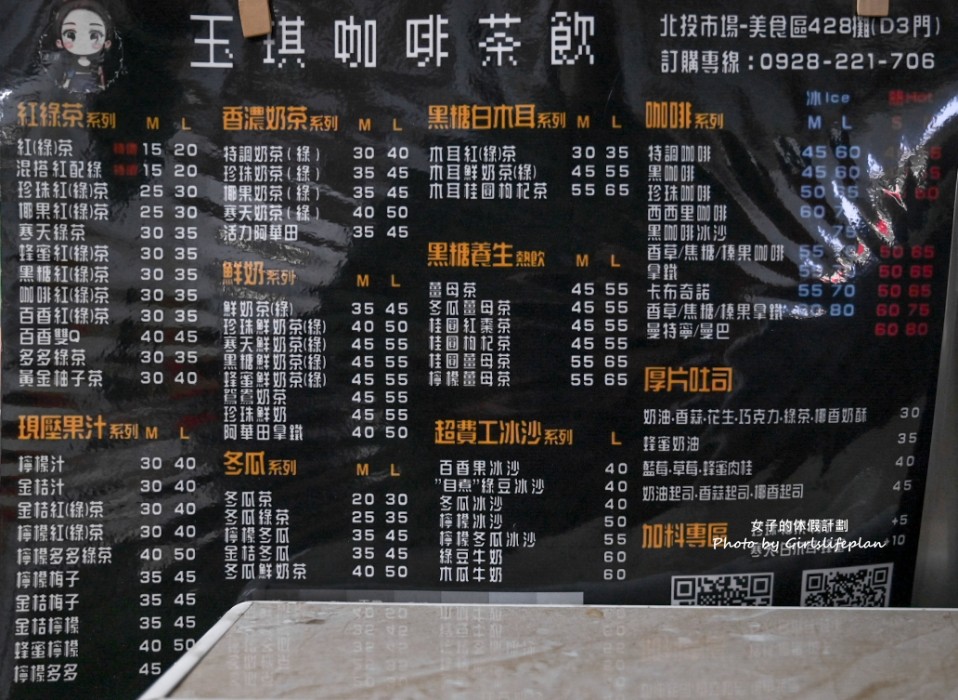 玉琪咖啡茶飲
北投市場-美食區428攤(D3門)
訂購專線：0928-221-706
紅綠茶系列 M L
紅(綠)茶 特價 15 20
混搭紅配綠 特價 15 20
珍珠紅(綠)茶 25 30
椰果紅(綠)茶 25 30
寒天綠茶 30 35
蜂蜜紅(綠)茶 30 35
黑糖紅(綠)茶 30 35
咖啡紅(綠)茶 30 35
百香紅(綠)茶 30 35
百香雙Q 40 45
多多綠茶 30 35
黃金柚子茶 30 40
現壓果汁系列 M L
檸檬汁 30 40
金桔汁 30 40
金桔紅(綠)茶 30 40
檸檬紅(綠)茶 30 40
檸檬多多綠茶 40 50
檸檬梅子 35 45
金桔梅子 35 45
金桔檸檬 35 45
蜂蜜檸檬 40 50
檸檬多多 45
香濃奶茶系列 M L
特調奶茶(綠) 30 40
珍珠奶茶(綠) 35 45
椰果奶茶(綠) 35 45
寒天奶茶(綠) 40 50
活力阿華田 35 45
鮮奶系列 M L
鮮奶茶(綠) 35 45
珍珠鮮奶茶(綠) 40 50
寒天鮮奶茶(綠) 45 55
黑糖鮮奶茶(綠) 45 55
蜂蜜鮮奶茶(綠) 45 55
鴛鴦奶茶 45 55
珍珠鮮奶 45 55
阿華田拿鐵 40 50
冬瓜系列 M L
冬瓜茶 20 30
冬瓜綠茶 25 35
檸檬冬瓜 35 45
金桔冬瓜 35 45
冬瓜鮮奶茶 40 50
黑糖白木耳系列 M L
木耳紅(綠)茶 30 35
木耳鮮奶茶(綠) 45 55
木耳桂圓枸杞茶 55 65
黑糖養生熱飲 M L
薑母茶 45 55
冬瓜薑母茶 45 55
桂圓紅棗茶 45 55
桂圓枸杞茶 45 55
桂圓薑母茶 55 65
檸檬薑母茶 55 65
超費工冰沙系列 L
百香果冰沙 40
"自煮"綠豆冰沙 40
冬瓜冰沙 40
檸檬冰沙 50
檸檬冬瓜冰沙 55
綠豆牛奶 60
木瓜牛奶 60
咖啡系列 冰Ice 熱Hot
M L S
特調咖啡 45 60
黑咖啡 45 60
珍珠咖啡 50
西西里咖啡 60
黑咖啡冰沙
香草/焦糖/榛果咖啡 50 65
拿鐵 50 65
卡布奇諾 55 70 50 65
香草/焦糖/榛果拿鐵 80 60 75
曼特寧/曼巴 60 80
厚片吐司
奶油.香蒜.花生.巧克力.綠茶.椰香奶酥 30
蜂蜜奶油 35
藍莓.草莓.蜂蜜肉桂 40
奶油起司.香蒜起司.椰香起司 45
加料專區
+5
+10
女子的休假計劃
Photo by Girlslifeplan